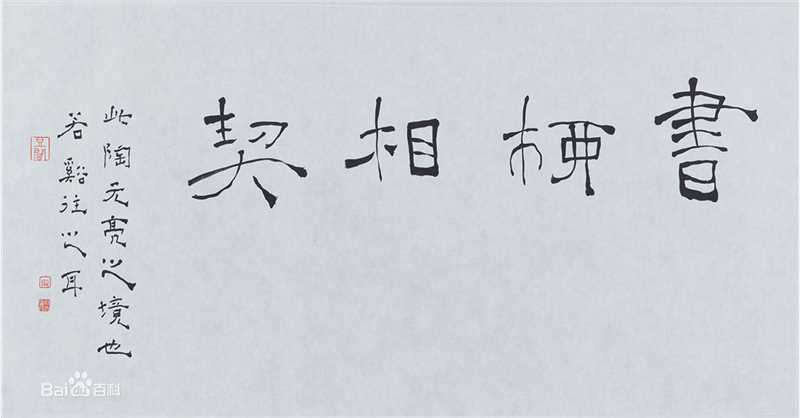 書相契
此陶元亮之境也
若谿往之耳
Bai百科